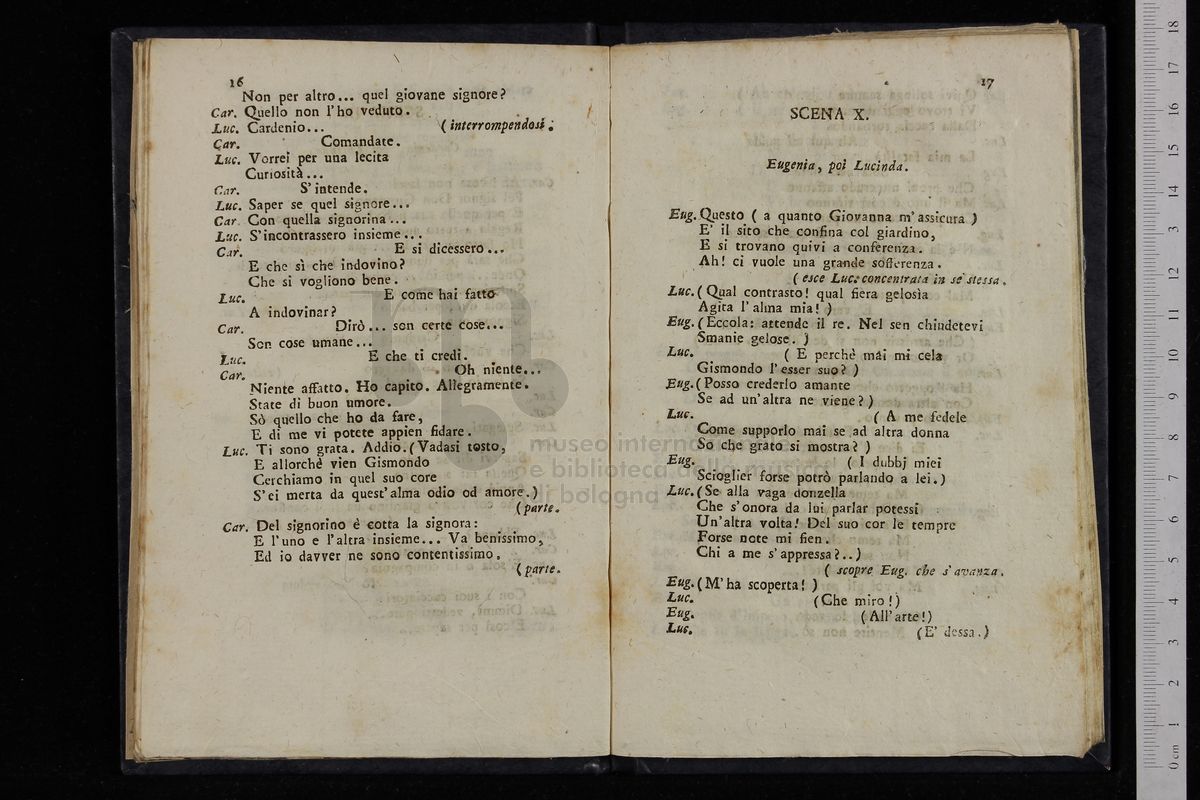 16
Non per altro... quel giovane signore?
Car. Quello non l'ho veduto.
Luc. Cardenio... (interrompendosi.
Car. Comandate.
Luc. Vorrei per una lecita
Curiosità...
Car. S'intende.
Luc. Saper se quel signore...
Car. Con quella signorina...
Luc. S'incontrassero insieme...
Car. E si dicessero...
E che sì che indovino?
Che si vogliono bene.
Luc. E come hai fatto
A indovinar?
Car. Dirò... son certe cose...
Son cose umane...
Luc. E che ti credi.
Car. Oh niente...
Niente affatto. Ho capito. Allegramente.
State di buon umore.
Sò quello che ho da fare,
E di me vi potete appien fidare.
Luc. Ti sono grata. Addio. (Vadasi tosto,
E allorchè vien Gismondo
Cerchiamo in quel suo core
S'ei merta da quest'alma odio od amore.)
(parte.
Car. Del signorino è cotta la signora:
E l'uno e l'altra insieme... Va benissimo,
Ed io davver ne sono contentissimo.
(parte.
17
SCENA X.
Eugenia, poi Lucinda.
Eug. Questo ( a quanto Giovanna m'assicura )
E' il sito che confina col giardino,
E si trovano quivi a conferenza.
Ah! ci vuole una grande sofferenza.
( esce Luc. concentrata in se stessa.
Luc. ( Qual contrasto! qual fiera gelosia
Agita l'alma mia! )
Eug. ( Eccola: attende il re. Nel sen chiudetevi
Smanie gelose. )
Luc. ( E perchè mai mi cela
Gismondo l'esser suo? )
Eug. (Posso crederlo amante
Se ad un'altra ne viene? )
Luc. ( A me fedele
Come supporlo mai se ad altra donna
So che grato si mostra? )
Eug. ( I dubbj miei
Scioglier forse potrò parlando a lei.)
Luc. (Se alla vaga donzella
Che s'onora da lui parlar potessi
Un'altra volta! Del suo cor le tempre
Forse note mi fien.
Chi a me s'appressa?..)
( scopre Eug. che s'avanza.
Eug. (M'ha scoperta! )
Luc. (Che miro!)
Eug. (All'arte!)
Luc. (E' dessa.)
museo internazionale
e biblioteca della musica
di bologna
18
17
16
15
14
13
12
11
10
9
8
7
6
5
4
3
2
1
0 cm